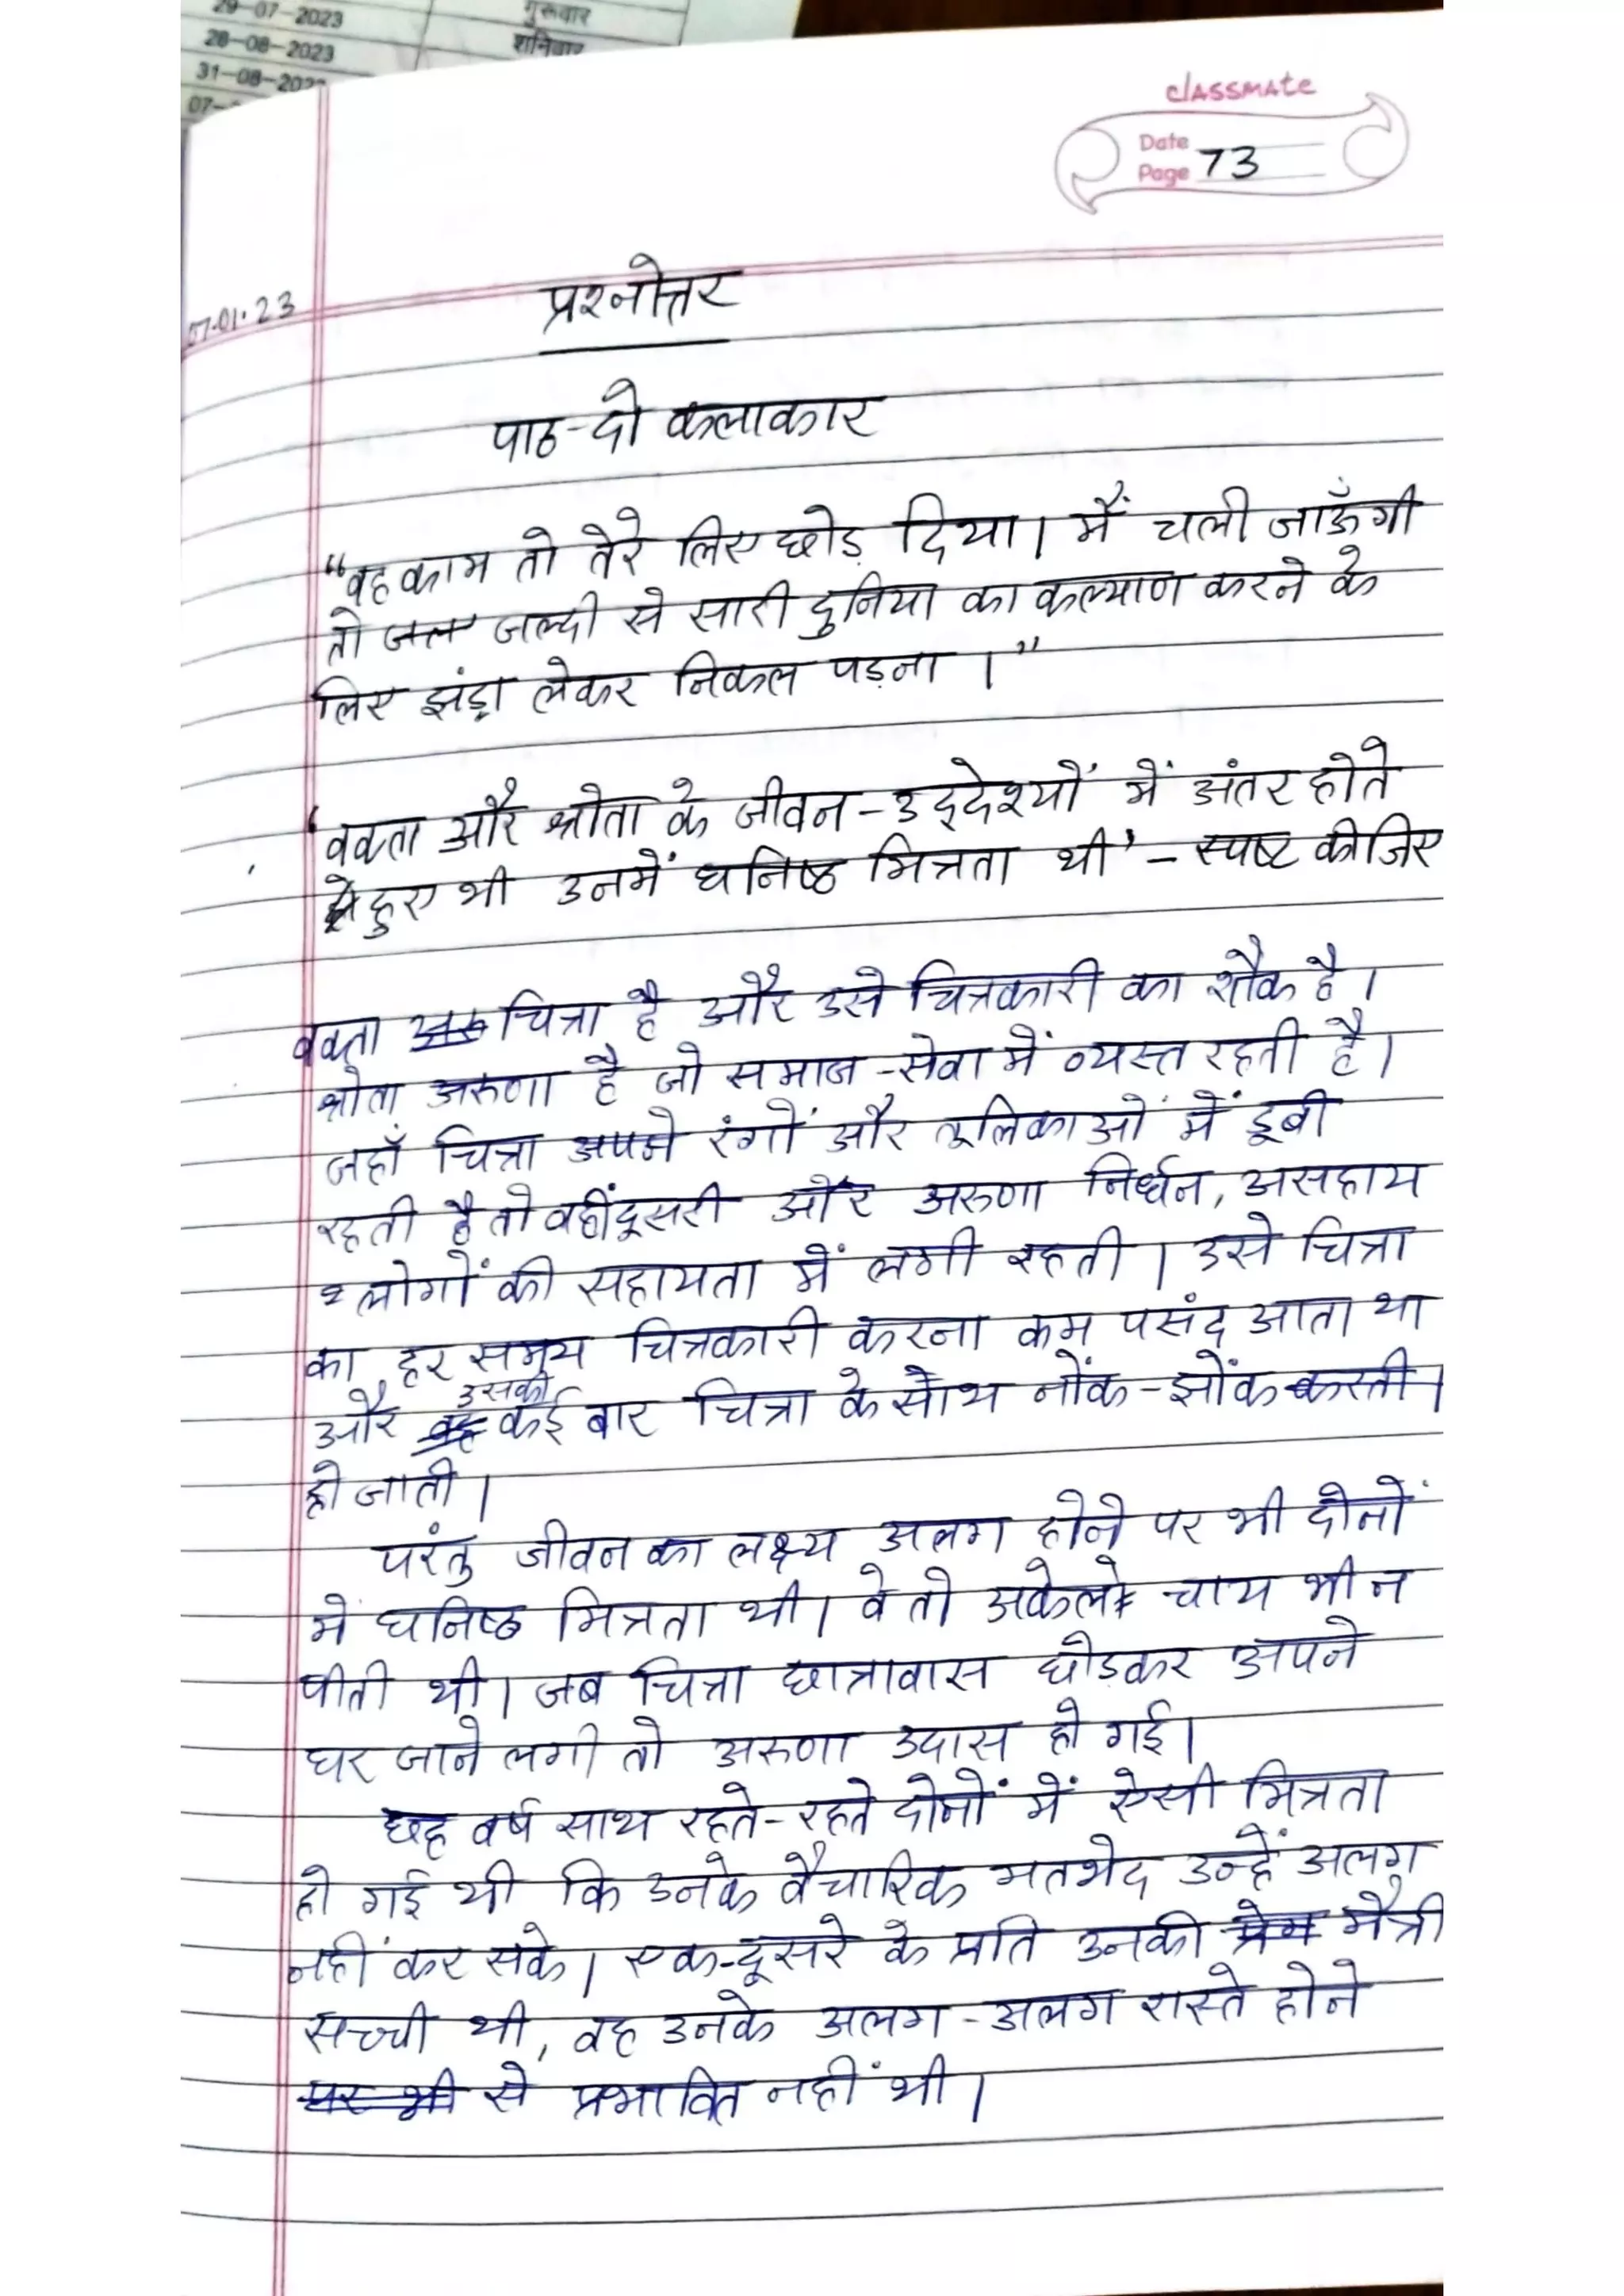 29-07-2023 गुरूवार
28-08-2023 शनिवार
31-08-202
07-
classmate
Date
Page 73
07.01.23
प्रश्नोत्तर
पाठ-दो कलाकार
“वह काम तो तेरे लिए छोड़ दिया। मैं चली जाऊँगी
तो जल्दी से सारी दुनिया का कल्याण करने के
लिए झंड़ा लेकर निकल पड़ना।”
‘वक्ता और श्रोता के जीवन-उद्देश्यों में अंतर होते
हुए भी उनमें घनिष्ठ मित्रता थी’ - स्पष्ट कीजिए
वक्ता चित्रा है और उसे चित्रकारी का शौक है।
श्रोता अरुणा है जो समाज-सेवा में व्यस्त रहती है।
जहाँ चित्रा अपने रंगों और तूलिकाओं में डूबी
रहती है तो वहीं दूसरी ओर अरुणा निर्धन, असहाय
लोगों की सहायता में लगी रहती। उसे चित्रा
का हर समय चित्रकारी करना कम पसंद आता था
और उसकी कई बार चित्रा के साथ नोंक-झोंक करती।
हो जाती।
परंतु जीवन का लक्ष्य अलग होने पर भी दोनों
में घनिष्ठ मित्रता थी। वे तो अकेले चाय भी न
पीती थी। जब चित्रा छात्रावास छोड़कर अपने
घर जाने लगी तो अरुणा उदास हो गई।
छह वर्ष साथ रहते-रहते दोनों में ऐसी मित्रता
हो गई थी कि उनके वैचारिक मतभेद उन्हें अलग
नहीं कर सके। एक-दूसरे के प्रति उनकी प्रेम मैत्री
सच्ची थी, वह उनके अलग-अलग रास्ते होने
पर भी से प्रभावित नहीं थी।